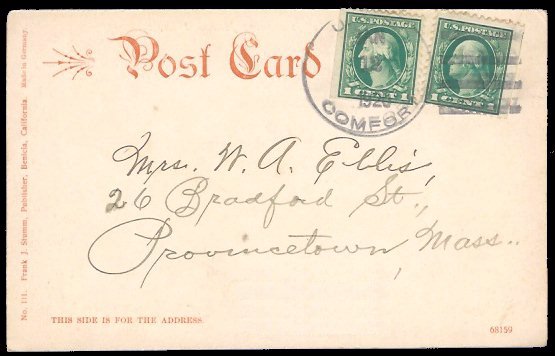 Post Card
U.S. POSTAGE
1 CENT 1
U.S. POSTAGE
1 CENT 1
1920
COMFOR
Mrs. W. A. Ellis,
26 Bradford St.,
Provincetown, Mass..
No. 111. Frank J. Stumm, Publisher, Benicia, California. Made in Germany
THIS SIDE IS FOR THE ADDRESS.
68159